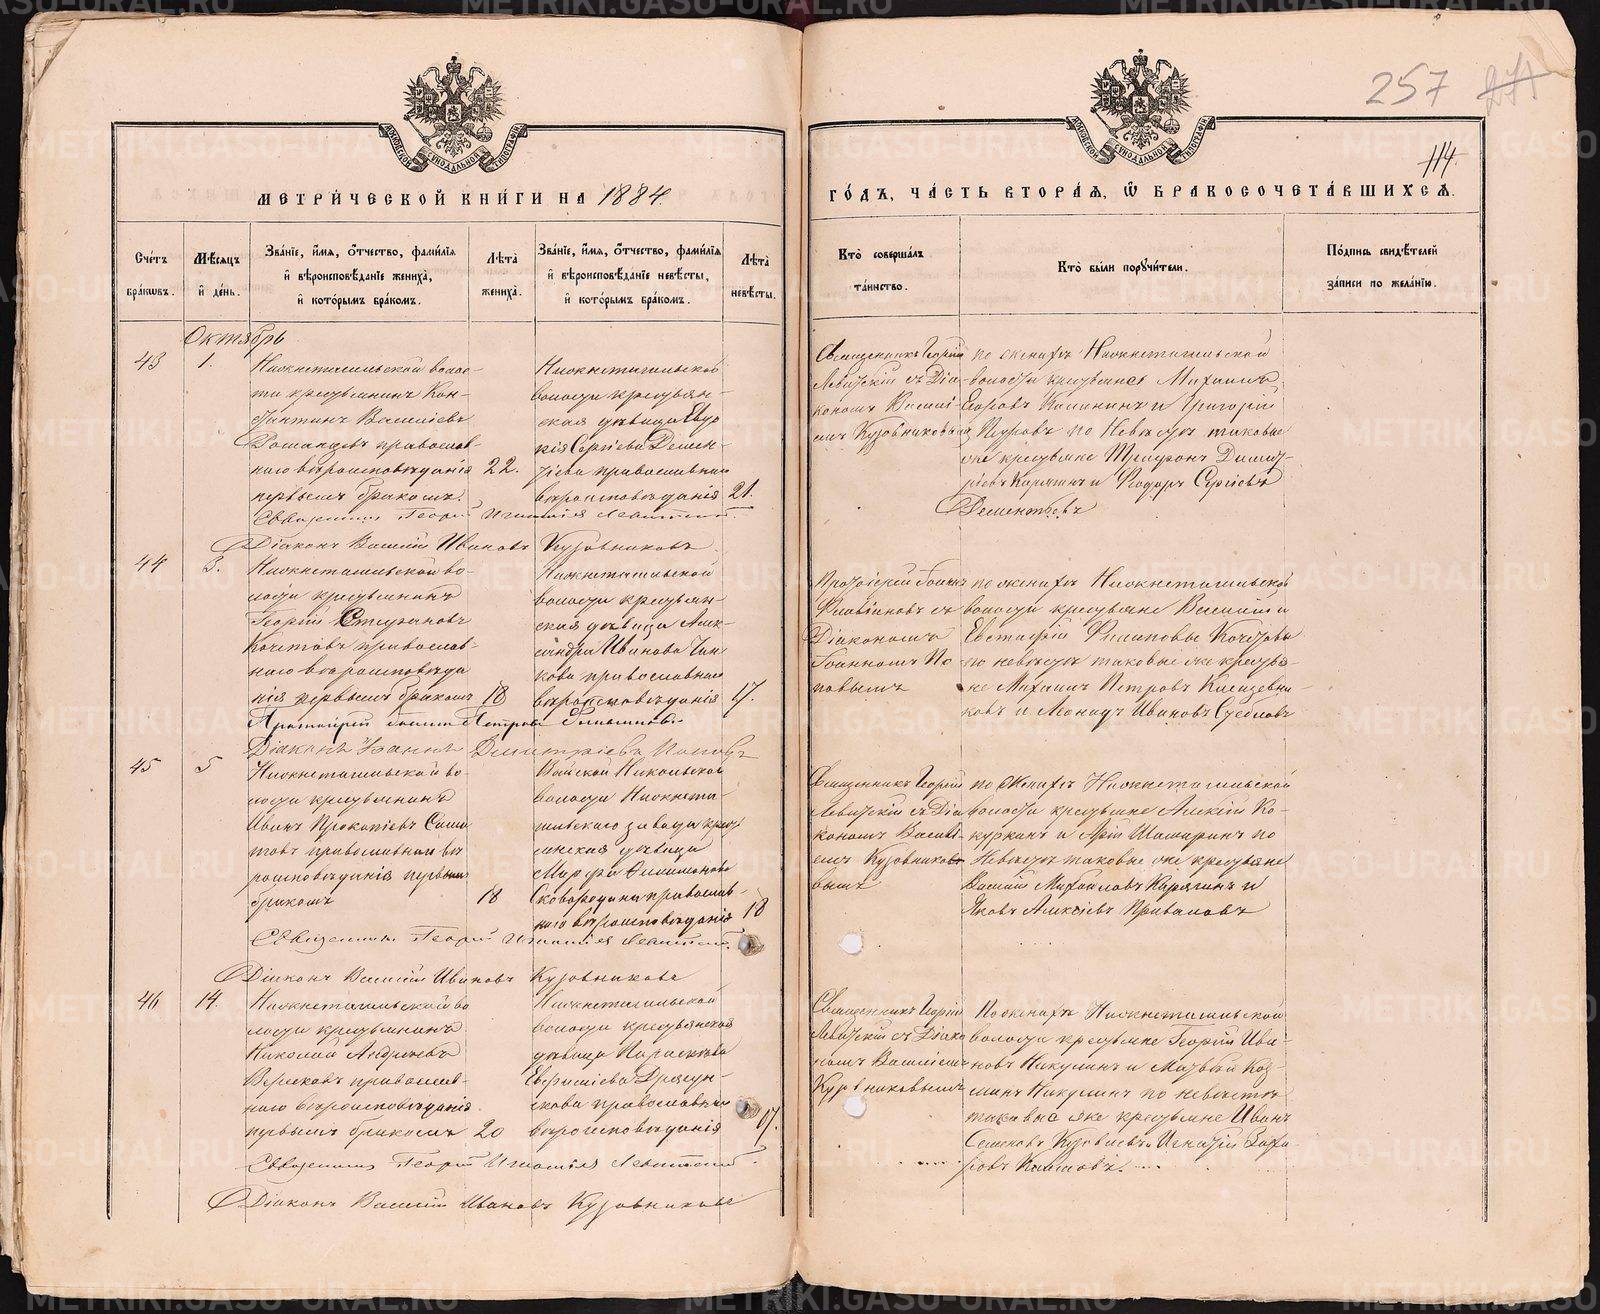 257
114.
МЕТРИЧЕСКОЙ КНИГИ НА 1884.
ГОДЪ, ЧАСТЬ ВТОРАЯ, Ѡ БРАКОСОЧЕТАВШИХСЯ.
Счетъ браковъ.
Мѣсяцъ и день.
Званіе, имя, отчество, фамилія и вѣроисповѣданіе жениха, и которымъ бракомъ.
Лѣта жениха.
Званіе, имя, отчество, фамилія и вѣроисповѣданіе невѣсты, и которымъ бракомъ.
Лѣта невѣсты.
Кто совершалъ таинство.
Кто были поручители.
Подпись свидѣтелей записи по желанію.
Октябрь
43
1.
Нижнетагильской волос-
ти крестьянинъ Кон-
стантинъ Василіевъ
православ-
наго вѣроисповѣданія
первымъ бракомъ.
22.
Нижнетагильской
волости крестьян-
ская дѣвица Евдо
кія Сергіева Демен-
тіева православнаго
вѣроисповѣданія
21.
Священникъ Георгій
Левитскій съ Діа-
кономъ Васили-
емъ Кузовниковымъ
по женихѣ Нижнетагильской
волости крестьяне Михаилъ
Егоровъ Калининъ и Григорій
Петровъ по Невѣстѣ таковые
же крестьяне Трифонъ Димит-
ріевъ Карягинъ и Феодоръ Сергіевъ
Дементьевъ
Священникъ Георгій Игнатіевъ Левитский
Діаконъ Василій Ивановъ Кузовниковъ
44
3.
Нижнетагильской во-
лости крестьянинъ
Георгій Стефановъ
Кочетовъ православ-
наго вѣроисповѣда
нія первымъ бракомъ
18
Нижнетагильской
волости крестьян-
ская дѣвица Алек-
сандра Иванова
православнаго
вѣроисповѣданія
17.
Протоіерей Іоаннъ
Флавіановъ съ
Діакономъ
Іоанномъ По
повымъ
по женихѣ Нижнетагильской
волости крестьяне Василій и
Евстафій Филиповы
по невѣстѣ таковые же крестья-
не Михаилъ Петровъ
ковъ и Леонидъ Ивановъ
Протоіерей Іоаннъ Петровъ Флавіановъ
Діаконъ Іоаннъ Димитріевъ Поповъ
45
5
Нижнетагильской во-
лости крестьянинъ
Иванъ Прокопіевъ
православнаго вѣ
роисповѣданія первымъ
бракомъ
18
Выйской Никольской
волости Нижнета-
гильскаго завода крест
янская дѣвица
Марфа Филимонова
Сковородина православ-
наго вѣроисповѣданія
18
Священникъ Георгій
Левитскій съ Діа
кономъ Васили-
емъ Кузовнико-
вымъ
по Женихѣ Нижнетагильской
волости крестьяне Алексій Ко-
куркинъ и по
Невѣстѣ таковые же крестьяне
Василій Михаиловъ Карягинъ и
Яковъ Алексіевъ Приваловъ
Священникъ Георгій Игнатіевъ Левитский.
Діаконъ Василій Ивановъ Кузовниковъ
46
14.
Нижнетагильской во
лости крестьянинъ
Николай Андреевъ
православ-
наго вѣроисповѣданія
первымъ бракомъ
20
Нижнетагильской
волости крестьянская
дѣвица Параскева
православнаго
вѣроисповѣданія
17.
Священникъ Георгій
Левитскій съ Діако
номъ Василіемъ
Кузовниковымъ
По женихѣ Нижнетагильской
волости крестьяне Георгій Ива-
новъ Никулинъ и Матвѣй Коз-
минъ Никулинъ по невѣстѣ
таковые же крестьяне Иванъ
Семеновъ Игнатій Заха-
ровъ
Священникъ Георгій Игнатіевъ Левитский.
Діаконъ Василій Ивановъ Кузовниковъ
METRIKI.GASO-URAL.RU